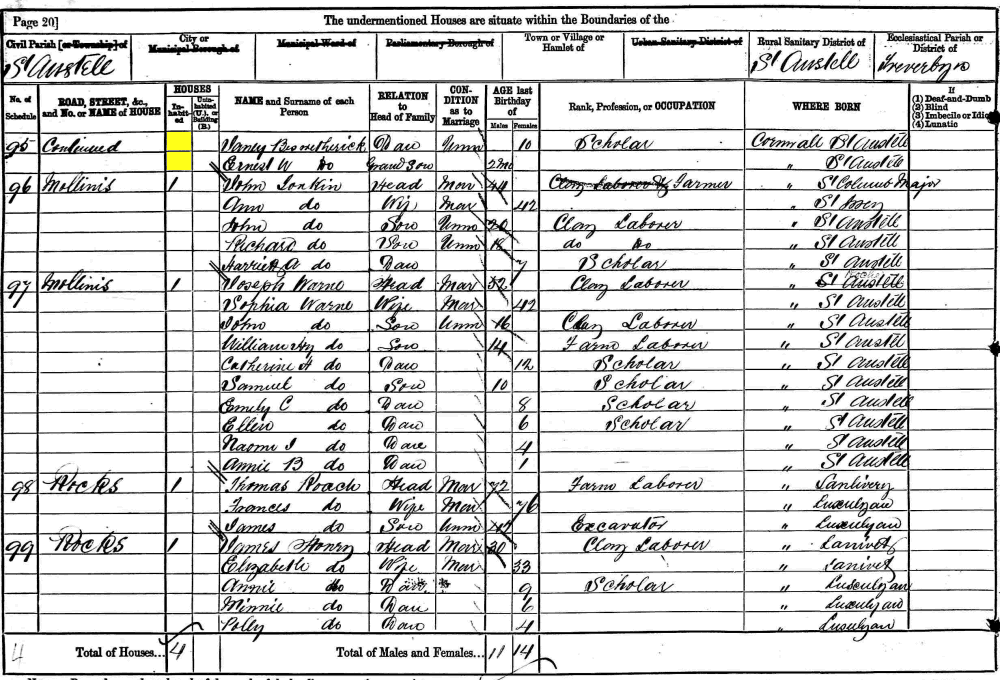 Page 20]
The undermentioned Houses are situate within the Boundaries of the
Civil Parish [or Township] of
City or Municipal Borough of
Municipal Ward of
Parliamentary Borough of
Town or Village or Hamlet of
Urban Sanitary District of
Rural Sanitary District of
Ecclesiastical Parish or District of
St Austell
St Austell
No. of Schedule
ROAD, STREET, &c., and No. or NAME of HOUSE
HOUSES
Inhabited
Uninhabited (U.), or Building (B.)
NAME and Surname of each Person
RELATION to Head of Family
CONDITION as to Marriage
AGE last Birthday of
Males
Females
Rank, Profession, or OCCUPATION
WHERE BORN
If
(1) Deaf-and-Dumb
(2) Blind
(3) Imbecile or Idiot
(4) Lunatic
95 Continued Dau Unm 10 Scholar Cornwall St Austell
Ernest W Do Grand Son 2mo " St Austell
96 Mollinis 1 John Head Mar 44 Clay Laborer Farmer " St Columb Major
Ann do Wife Mar 42 " St
John do Son Unm 20 Clay Laborer " St Austell
Richard do Son Unm 18 do do " St Austell
Harriet A do Dau 7 Scholar " St Austell
97 Mollinis 1 Joseph Warne Head Mar 32 Clay Laborer " St Austell
Sophia Warne Wife Mar 42 " St Austell
John do Son Unm 16 Clay Laborer " St Austell
William Hy do Son 14 Farm Laborer " St Austell
Catherine A do Dau 12 Scholar " St Austell
Samuel do Son 10 Scholar " St Austell
Emily C do Dau 8 Scholar " St Austell
Ellen do Dau 6 Scholar " St Austell
Naomi J do Dau 4 " St Austell
Annie B do Dau 1 " St Austell
98 Rocks 1 Thomas Roach Head Mar 72 Farm Laborer " Lanlivery
Frances do Wife Mar 76 " Luxulyan
James do Son Unm Excavator " Luxulyan
99 Rocks 1 James Henry Head Mar 30 Clay Laborer " Lanivet
Elizabeth do Wife Mar 33 " Lanivet
Annie do Dau 9 Scholar " Luxulyan
Minnie do Dau 6 " Luxulyan
Polly do Dau 4 " Luxulyan
4 Total of Houses... 4 Total of Males and Females... 11 14